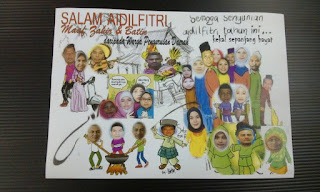 SALAM AIDILFITRI
Maaf Zahir & Batin
daripada Warga Pengurusan Daerah
semoga senyuman
aidilfitri tahun ini...
kekal sepanjang hayat